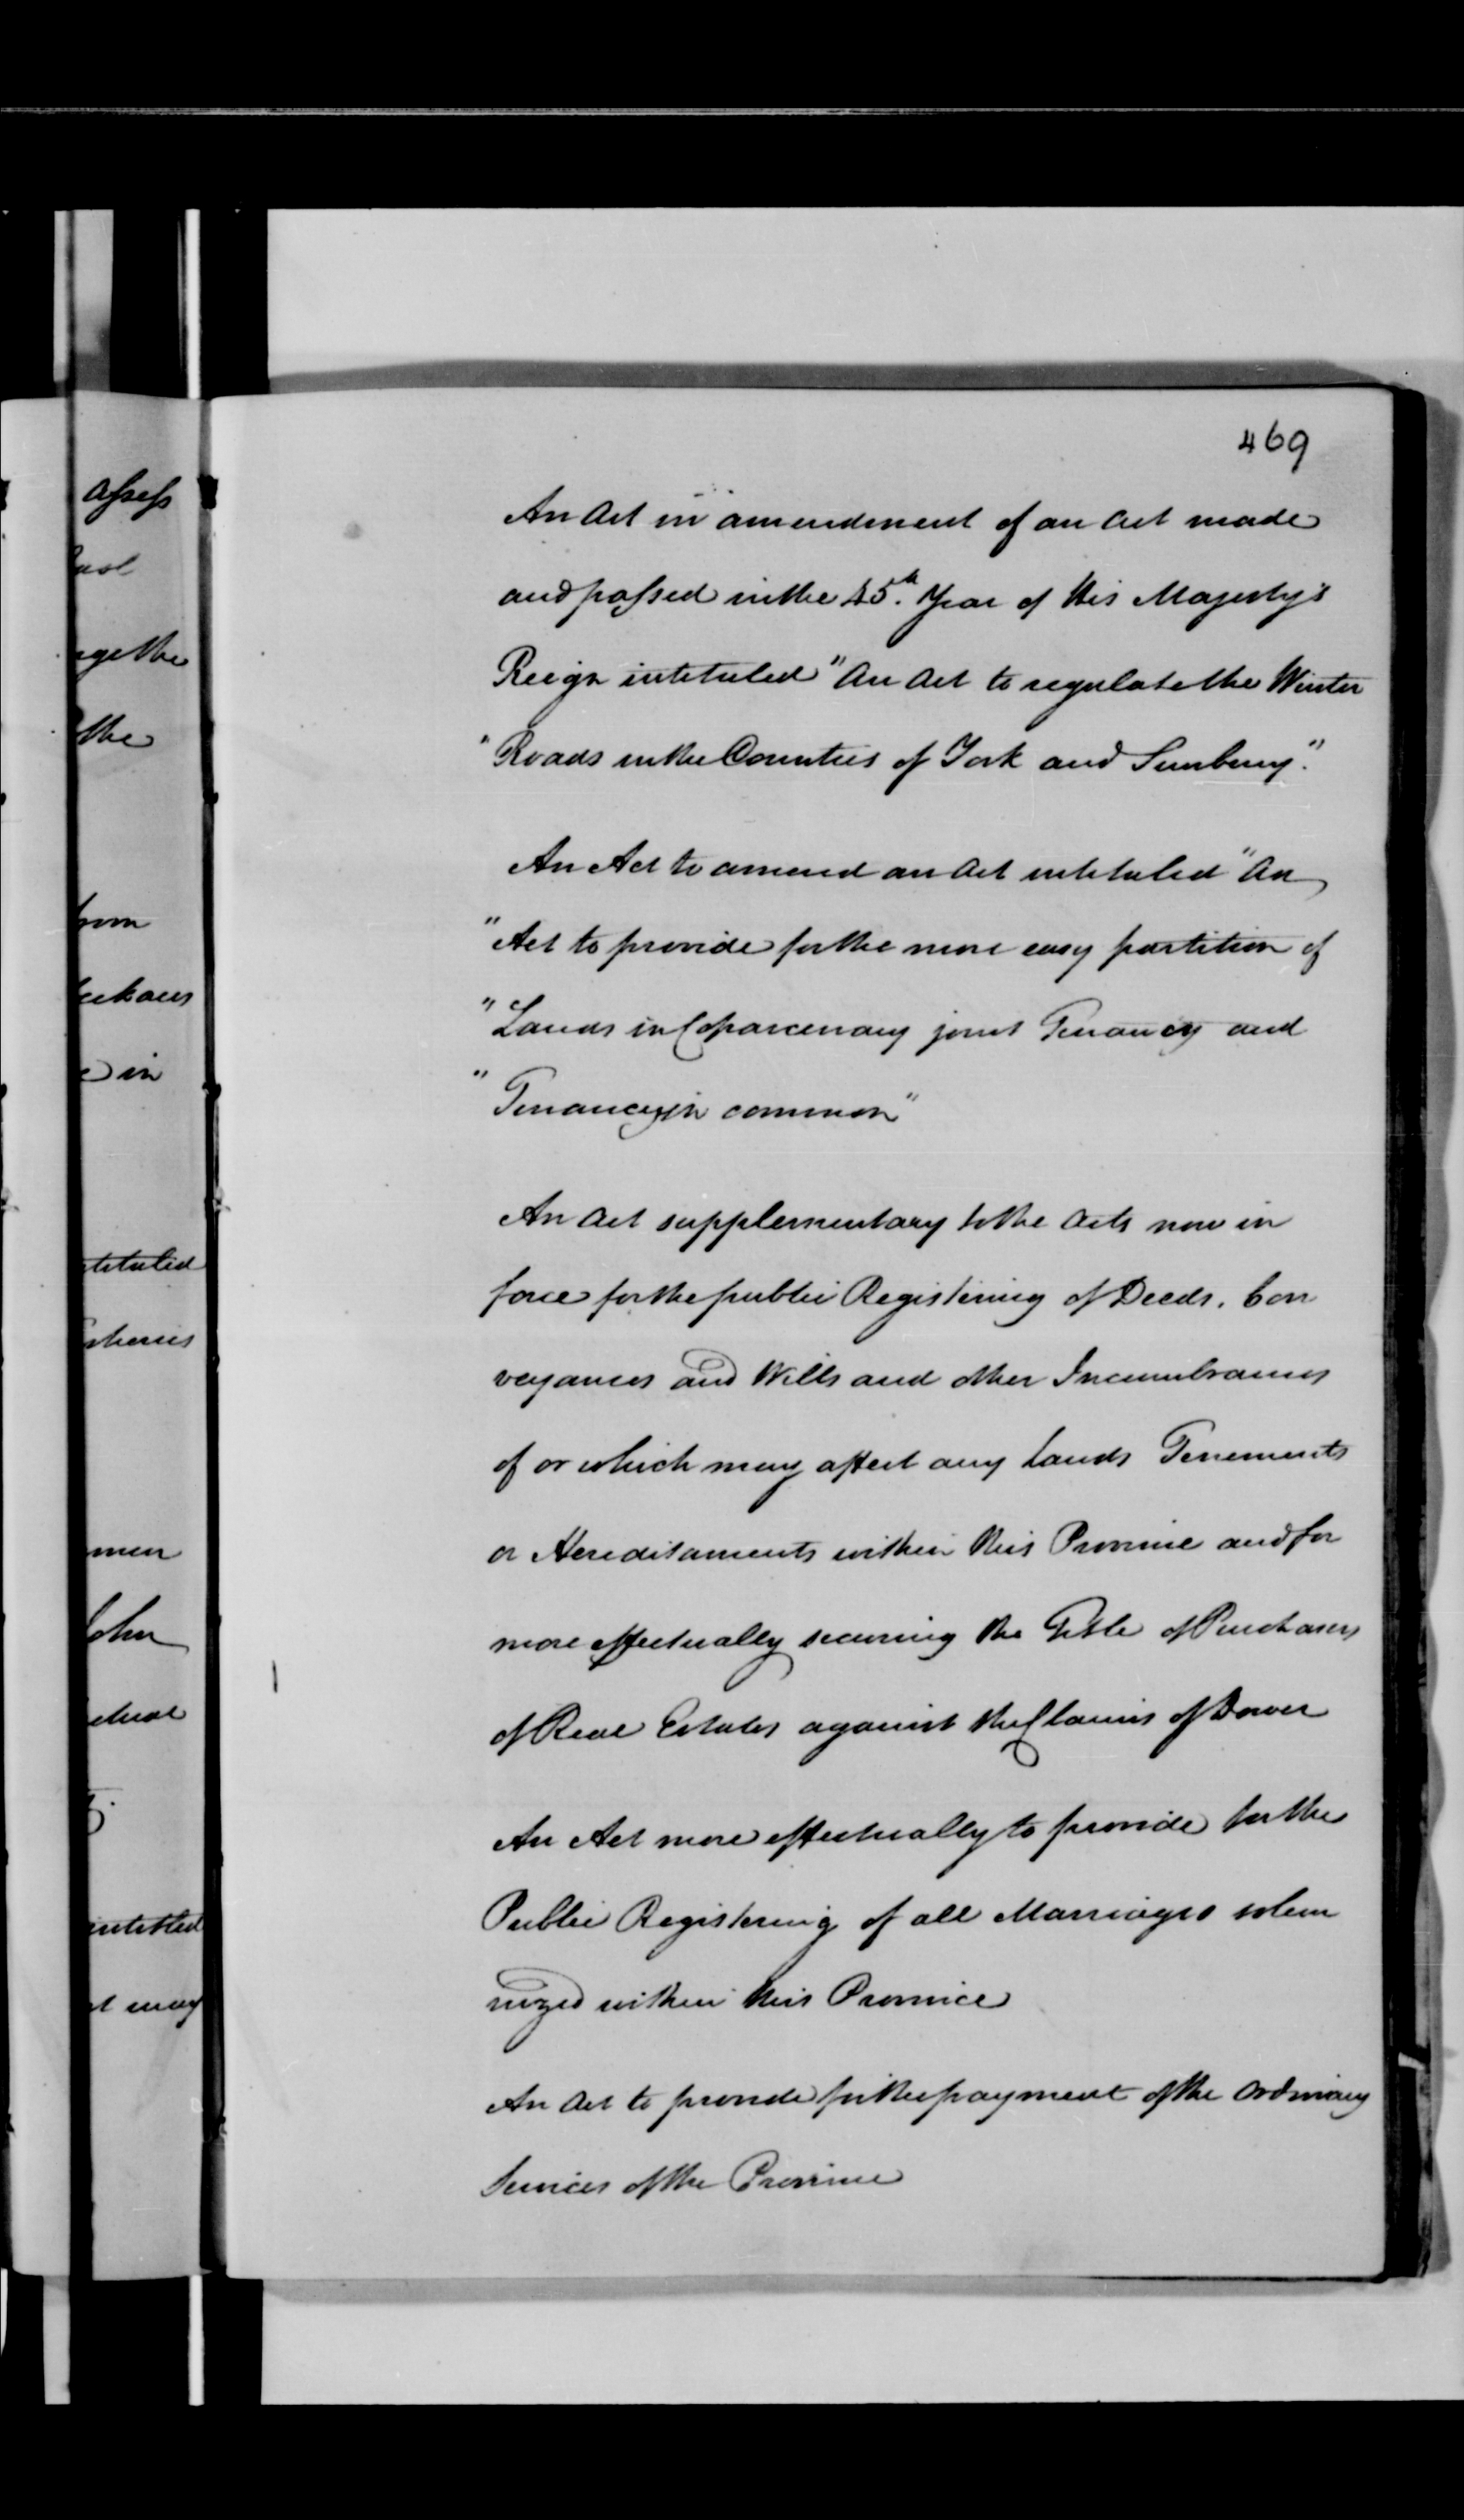 469
An Act in amendment of an Act made
and passed in the 45th. Year of His Majesty's
Reign intituled "An Act to regulate the Winter
"Roads in the Counties of York and Sunbury."
An Act to amend an Act intituled "An
"Act to provide for the more easy partition of
"Lands in Coparcenary joint Tenancy and
"Tenancy in common"
An Act supplementary to the Acts now in
force for the public Registering of Deeds, Con
veyances and Wills and other Incumbrances
of or which may affect any Lands Tenements
or Hereditaments within this Province and for
more effectually securing the Title of Purchasers
of Real Estates against the Claims of Dower
An Act more effectually to provide for the
Public Registering of all Marriages solem
nized within this Province
An Act to provide for the payment of the Ordinary
Services of the Province
assess
the
in
men
John
may